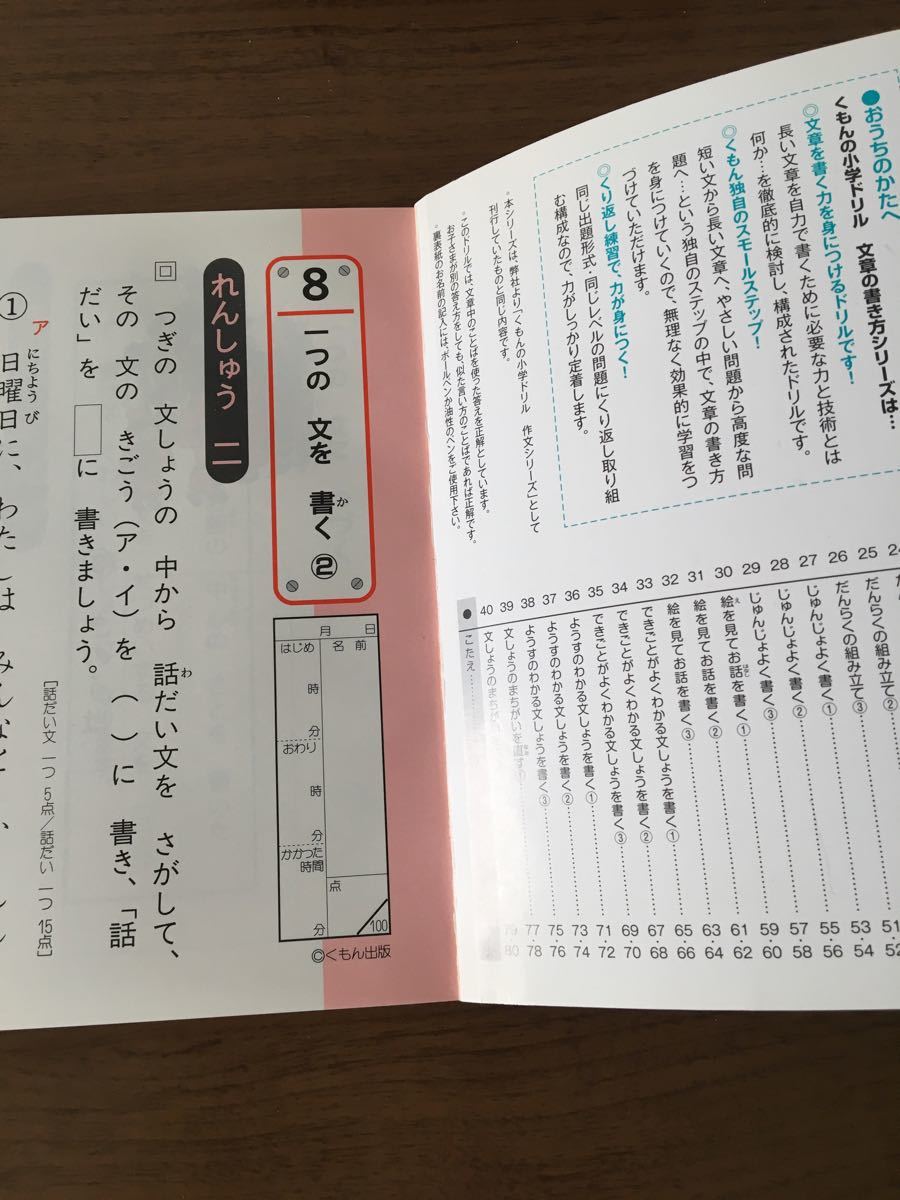 ●おうちのかたへ
くもんの小学ドリル 文章の書き方シリーズは…
◎文章を書く力を身につけるドリルです!
長い文章を自力で書くために必要な力と技術とは
何か…を徹底的に検討し、構成されたドリルです。
◎くもん独自のスモールステップ!
短い文から長い文章へ、やさしい問題から高度な問
題へ…という独自のステップの中で、文章の書き方
を身につけていくので、無理なく効果的に学習をつ
づけていただけます。
◎くり返し練習で、力が身につく!
同じ出題形式・同じレベルの問題にくり返し取り組
む構成なので、力がしっかり定着します。
*本シリーズは、弊社より「くもんの小学ドリル 作文シリーズ」として
刊行していたものと同じ内容です。
*このドリルでは、文章中のことばを使った答えを正解としています。
お子さまが別の答え方をしても、似た言い方のことばであれば正解です。
*裏表紙のお名前の記入には、ボールペンか油性のペンをご使用下さい。
24
25 だんらくの組み立て② 51・52
26 だんらくの組み立て③ 53・54
27 じゅんじょよく書く① 55・56
28 じゅんじょよく書く② 57・58
29 じゅんじょよく書く③ 59・60
30 絵を見てお話を書く① 61・62
31 絵を見てお話を書く② 63・64
32 絵を見てお話を書く③ 65・66
33 できごとがよくわかる文しょうを書く① 67・68
34 できごとがよくわかる文しょうを書く② 69・70
35 できごとがよくわかる文しょうを書く③ 71・72
36 ようすのわかる文しょうを書く① 73・74
37 ようすのわかる文しょうを書く② 75・76
38 ようすのわかる文しょうを書く③ 77・78
39 文しょうのまちがいを直す① 79・80
40 文しょうのまちがい
●こたえ
8 一つの 文を 書く②
月 日
名前
はじめ 時 分
おわり 時 分
かかった時間 分
点
100
©くもん出版
れんしゅう 二
つぎの 文しょうの 中から 話だい文を さがして、
その 文の きごう(ア・イ)を( )に 書き、「話
だい」を に 書きましょう。
[話だい文 一つ 5点/話だい 一つ 15点]
① ア 日曜日に、わたしは みんなと、